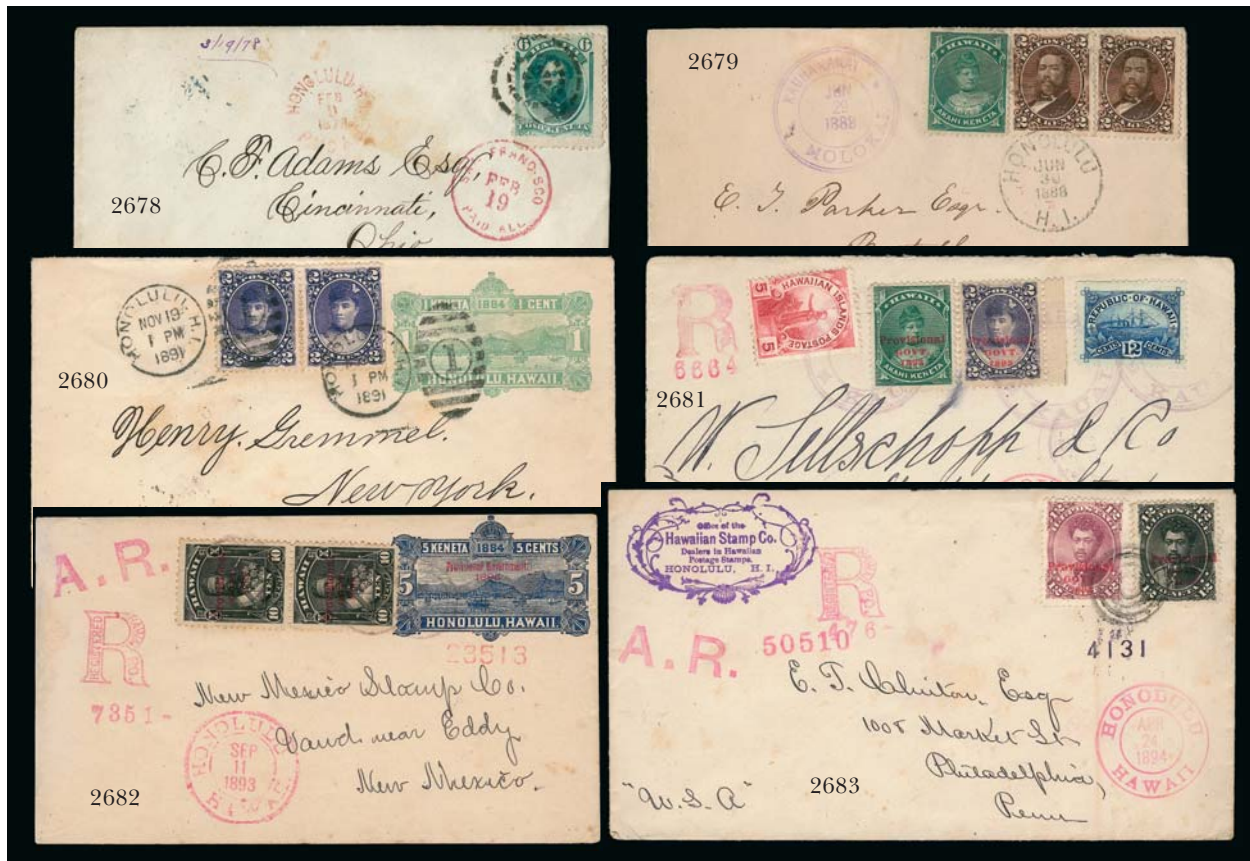 3/19/78
HONOLULU
FEB
11
HAWAII
C. F. Adams Esq,
Cincinnati,
Ohio
SAN FRANCISCO
FEB
19
PAID ALL
2678
2679
KAUNAKAKAI
JUN
29
1888
MOLOKAI
HAWAII
AKAHI KENETA
HONOLULU
JUN
30
1888
H. I.
E. T. Parker Esqr.
HONOLULU H.I.
NOV 19
1 PM
1891
2 2
2 2
1 KENETA 1884 1 CENT
1 1
HONOLULU, HAWAII.
1 PM
1891
1
2680
Henry. Gremmel.
New York.
R
6664
5 HAWAIIAN ISLANDS POSTAGE 5
HAWAII
Provisional
GOVT.
1893
AKAHI KENETA
Provisional
GOVT.
1893
REPUBLIC OF HAWAII
CENTS 12 CENTS
2681
W. Sellschopp & Co
A.R.
R
REGISTERED
7351-
10 10
10 10
5 KENETA 1884 5 CENTS
Provisional Government
1893
5 5
HONOLULU, HAWAII.
23513
New Mexico Stamp Co.
Vaud near Eddy
New Mexico.
HONOLULU
SEP
11
1893
HAWAII
2682
Office of the
Hawaiian Stamp Co.
Dealers in Hawaiian
Postage Stamps.
HONOLULU, H. I.
R
476-
A.R.
50510
Provisional
GOVT.
1893
4131
E. T. Chuiton, Esq
1005 Market St
Philadelphia,
Penn
"U.S.A"
HONOLULU
APR
24
1894
HAWAII
2683